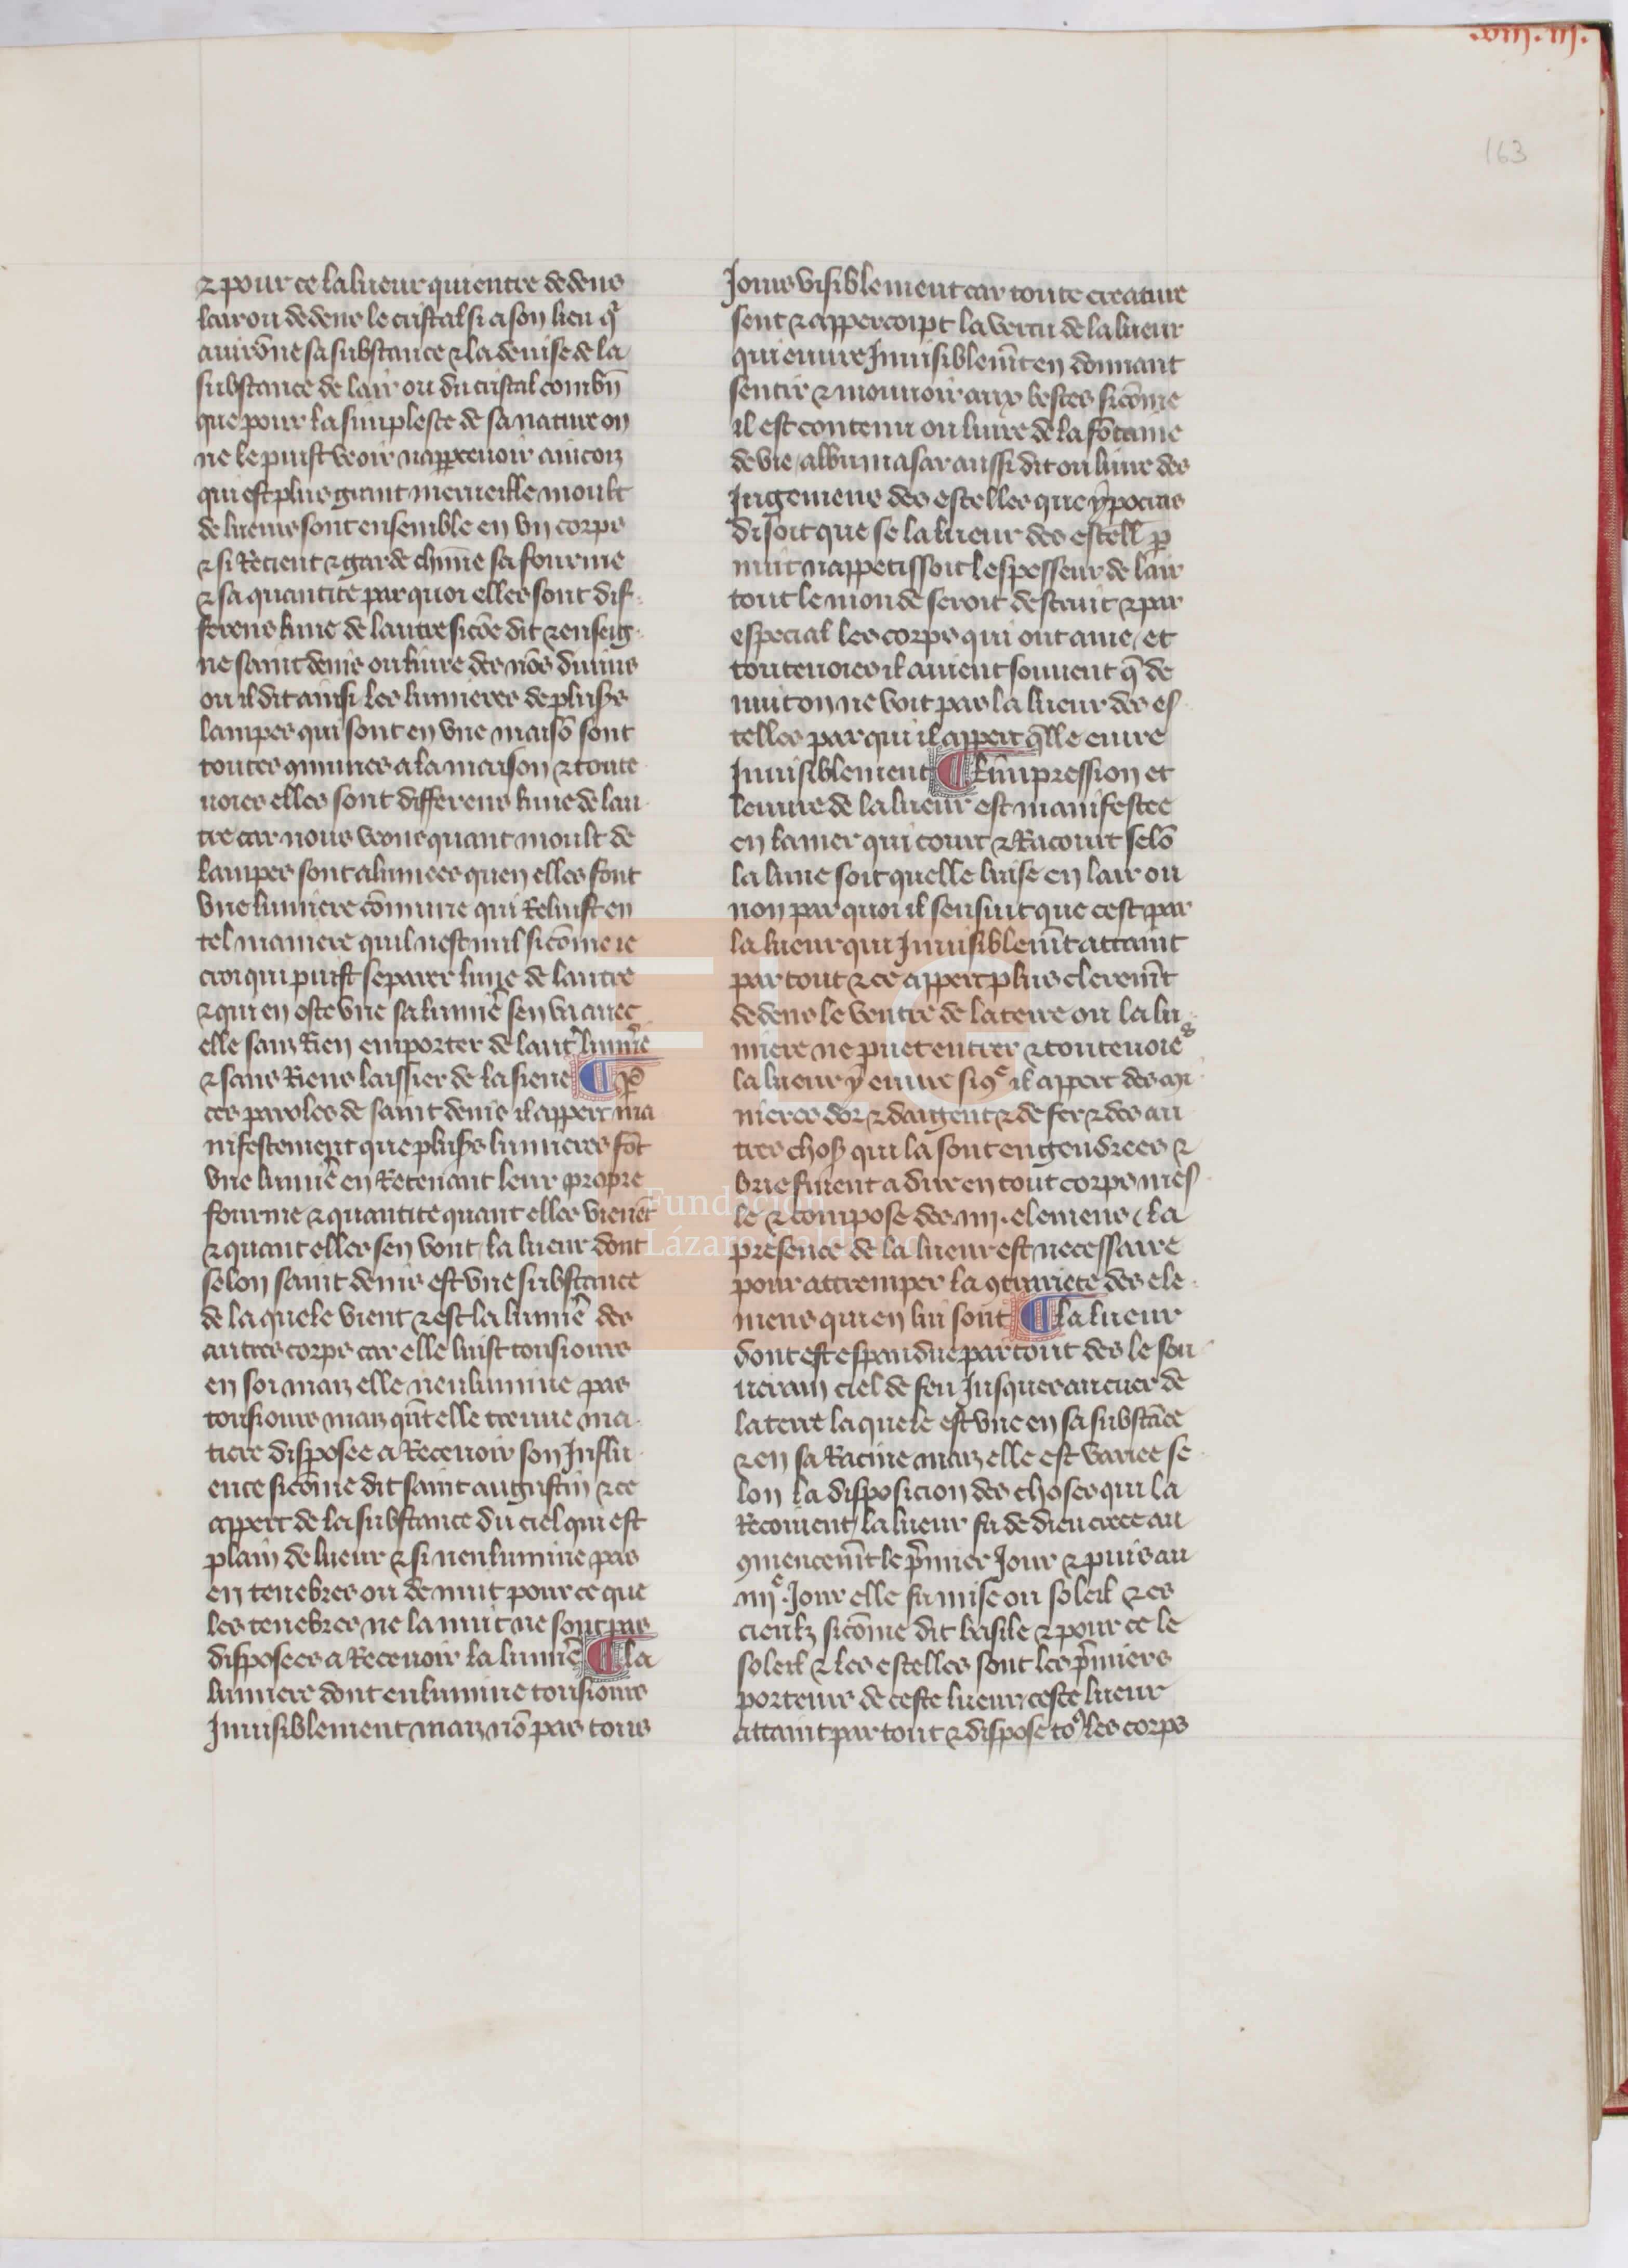 .viii.iii.
163
⁊ pour ce la lueur qui entre dedens
lair ou dedens le cristal si a son lieu q̄
auirōne sa substance ⁊ la deuise de la
substance de lair ou du cristal combn̄
que pour la simpleste de sa nature on
ne le puist veoir napperceuoir aincoiz
qui est plus grant merueille moult
de lueurs sont ensemble en vn corps
⁊ si Retient ⁊ garde chūne sa fourme
⁊ sa quantite par quoi elles sont dif-
ferens lune de lautre sicōe dit ⁊ enseig-
ne saint denis ou liure des nōs diuins
ou il dit ainsi les lumieres de plusrs
lampes qui sont en vne maisō sont
toutes 9munes a la maison ⁊ toute
uoies elles sont differens lune de lau
tre car nous veons quant moult de
lampes sont alumees quen elles font
vne lumiere cōmune qui Reluist en
tel maniere quil nest nul sicōme ie
croi qui puist separer lune de lautre
⁊ qui en oste vne sa lumie͛ sen va auec
elle sanz Rien emporter de laut͛ lumie͛
⁊ sans Riens laissier de la siene ¶ P̄
ces paroles de saint denis il appert ma
nifestement que plusrs lumieres fōt
vne lumie͛ en Retenant leur propre
fourme ⁊ quantite quant elles vienēt
⁊ quant elles sen vont / la lueur dont
selon saint denis est vne substance
de la quele vient ⁊ est la lumie͛ des
autres corps car elle luist tousiours
en soi maiz elle nenlumine pas
tousiours maiz qn̄t elle treuue ma-
tiere disposee a Receuoir son Influ-
ence sicōme dit saint augustin ⁊ ce
appert de la substance du ciel qui est
plain de lueur ⁊ si nenlumine pas
en tenebres ou de nuit pour ce que
les tenebres ne la nuit ne sont pas
disposees a Receuoir la lumie͛ ¶ la
lumiere dont enlumine tousiours
Inuisiblement maiz nō pas tous
Jours visiblement car toute creature
sent ⁊ appercoipt la vertu de la lueur
qui euure Inuisiblemn̄t en donnant
sentir ⁊ mouuoir aux bestes sicōme
il est contenu ou liure de la fōtaine
de vie / albumasar aussi dit ou liure des
Jugemens des estelles que ypocras
disoit que se la lueur des estell p̄
nuit nappetissoit lespesseur de lair
tout le monde seroit destruit ⁊ par
especial les corps qui ont ame / et
toutenoies il auient souuent q̄ de
nuit on ne voit pas la lueur des es
telles par qui il appert q̄lle euure
Inuisiblement ¶ Limpression et
leuure de la lueur est manifestee
en la mer qui court ⁊ Racourt selō
la lune soit quelle luise en lair ou
non par quoi il sensuit que cest par
la lueur qui Inuisiblemn̄t attaint
par tout ⁊ ce appert plus cleremn̄t
dedens le ventre de la terre ou la lu-
miere ne puet entrer ⁊ toutenoies
la lueur y euure si q̄ il appert des mi
nieres dor ⁊ dargent ⁊ de fer ⁊ des au
tres chos qui la sont engendrees ⁊
briefment a dire en tout corps mes
le ⁊ compose des .iiii. elemens / la
presence de la lueur est necessaire
pour attremper la 9trariete des ele-
mens qui en lui sont ¶ la lueur
dont est espandue par tout des le sou
uerain ciel de feu Jusques au cuer de
la terre la quele est vne en sa substāce
⁊ en sa Racine maiz elle est variee se-
lon la disposicion des choses qui la
Recoiuent / la lueur fu de dieu creee au
9mencemn̄t le p̄mier Jour ⁊ puis au
iiiie. Jour elle fu mise ou soleil ⁊ es
cieulz sicōme dit basile ⁊ pour ce le
soleil ⁊ les estelles sont les p̄miers
porteurs de ceste lueur / ceste lueur
attaint par tout ⁊ dispose to9 les corps
Fundación
Lázaro Galdiano